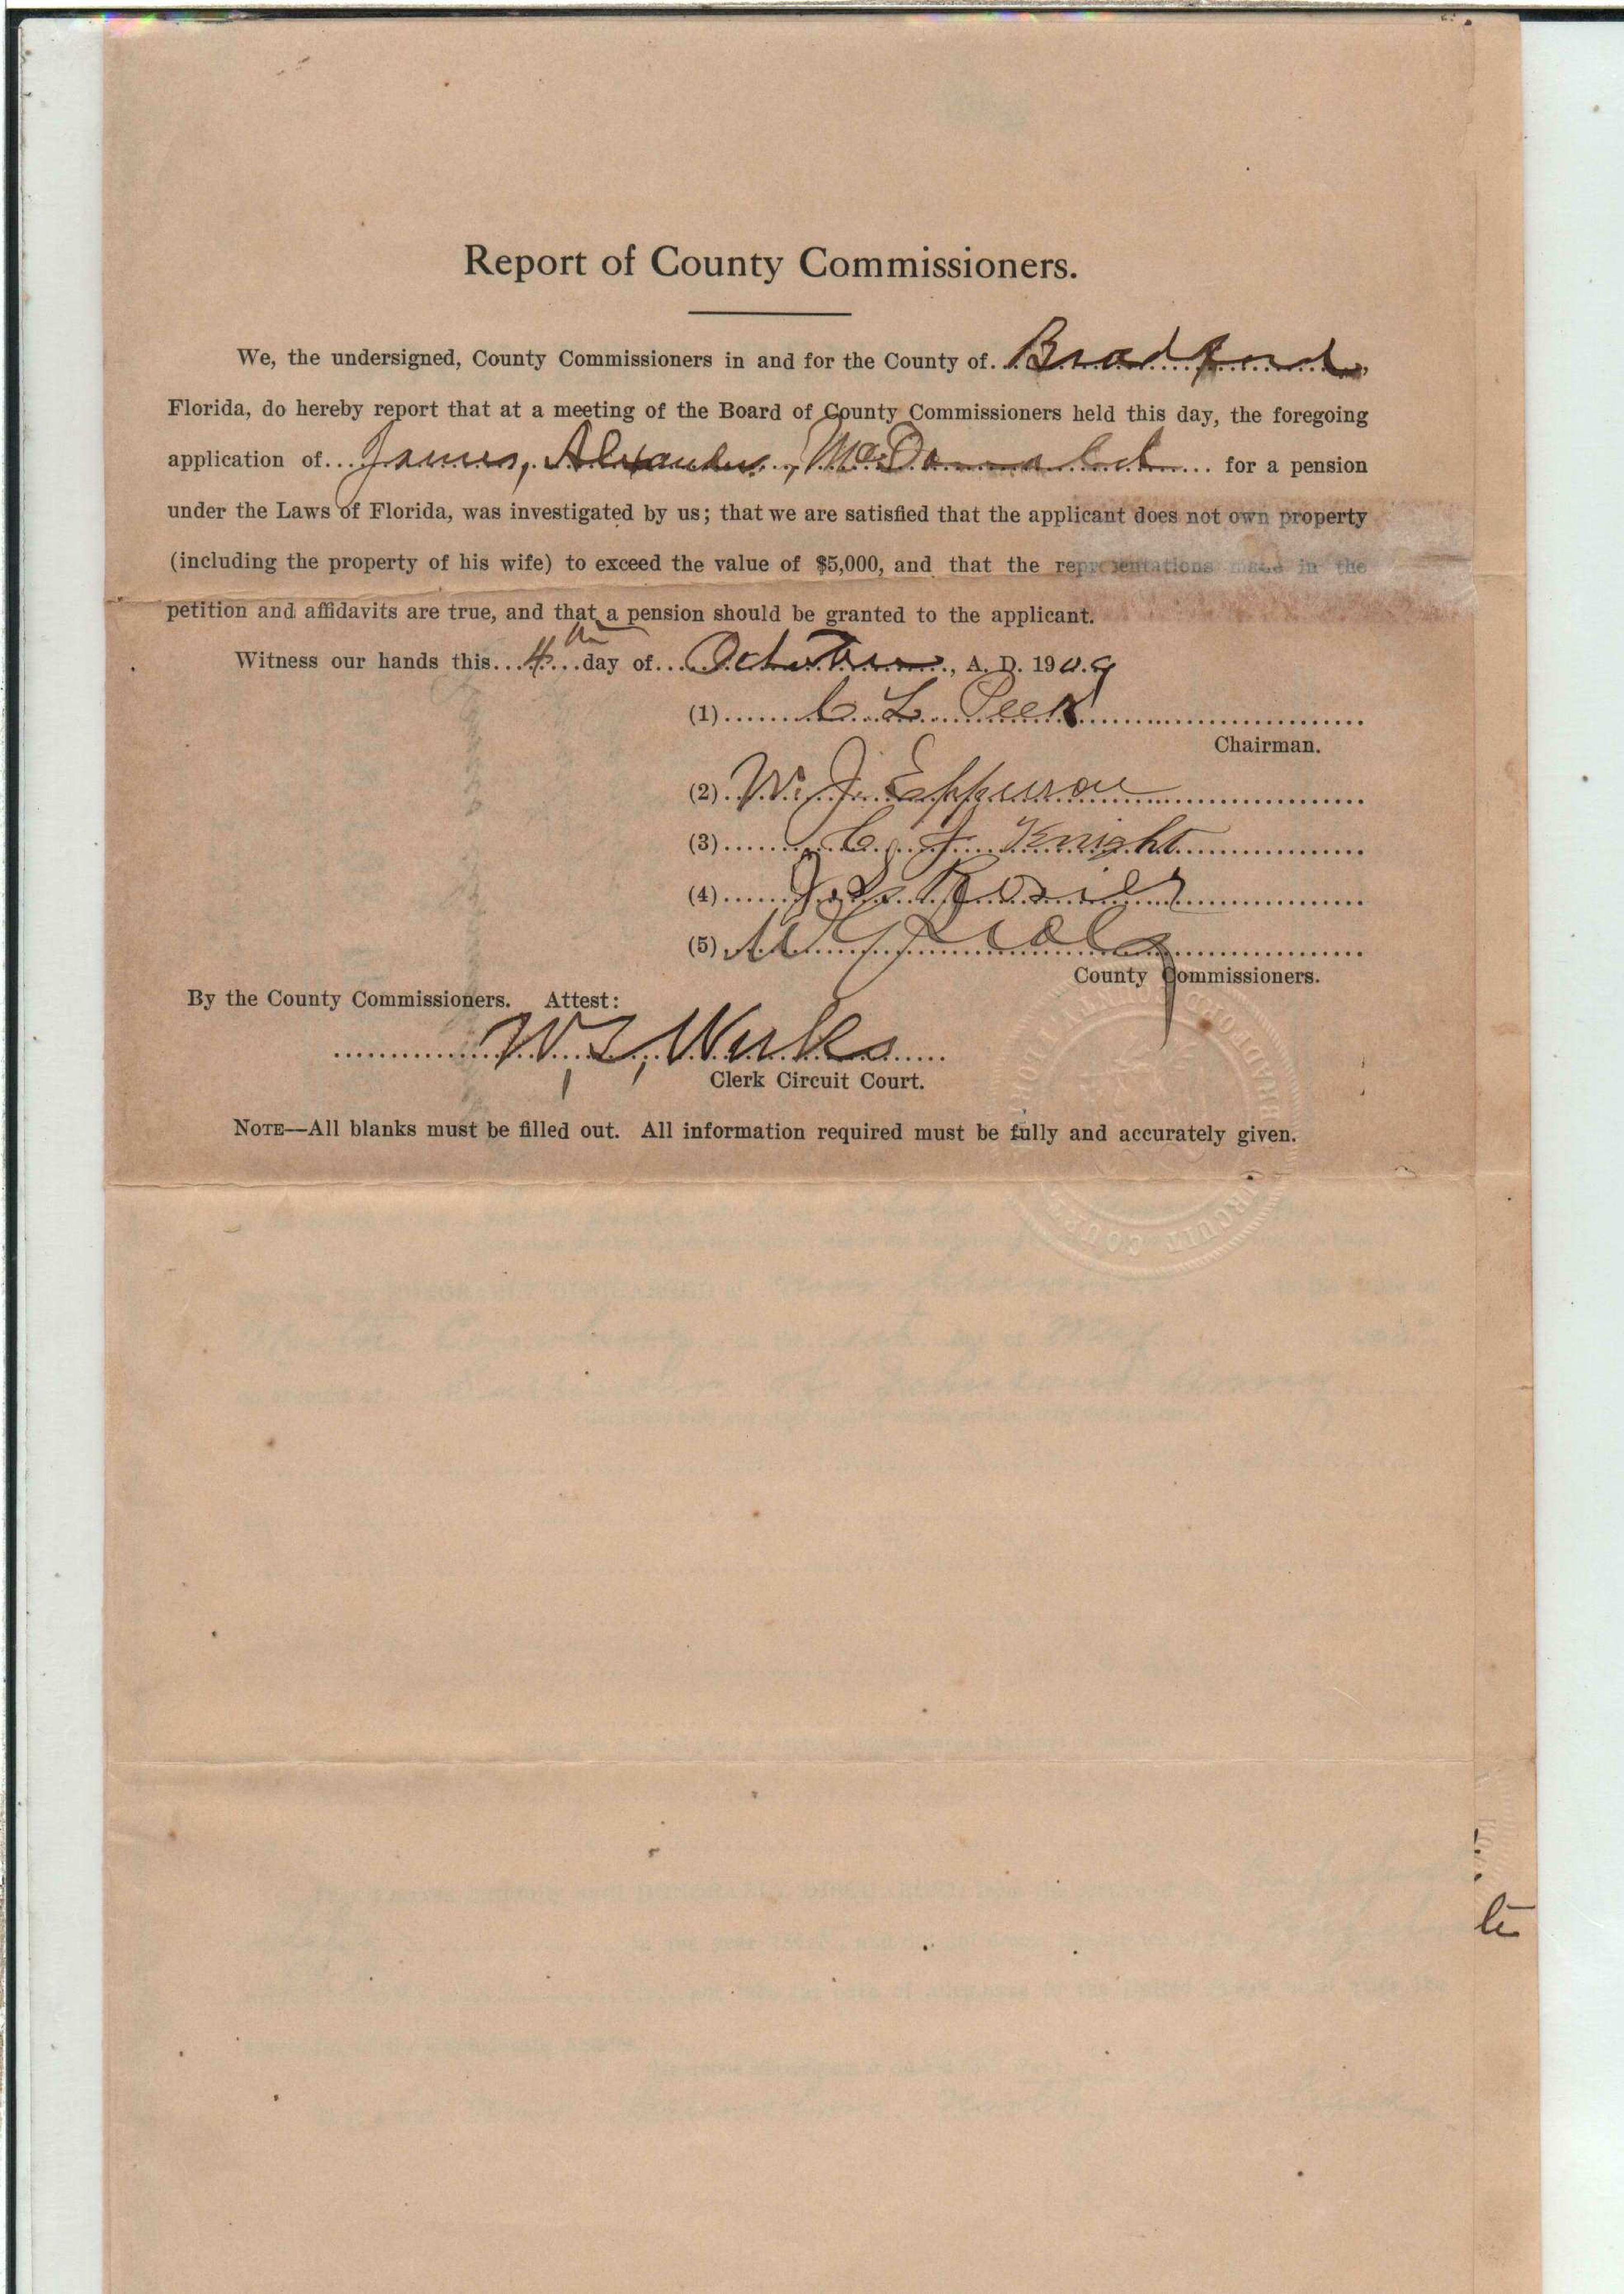 Report of County Commissioners.
We, the undersigned, County Commissioners in and for the County of Bradford,
Florida, do hereby report that at a meeting of the Board of County Commissioners held this day, the foregoing
application of James, Alexander, McDonald for a pension
under the Laws of Florida, was investigated by us; that we are satisfied that the applicant does not own property
(including the property of his wife) to exceed the value of $5,000, and that the representations made in the
petition and affidavits are true, and that a pension should be granted to the applicant.
Witness our hands this 4th day of October, A. D. 1909
(1) C. L. Peek
Chairman.
(2) W. J. Epperson
(3) C. J. Knight
(4) Rosier
(5)
County Commissioners.
By the County Commissioners. Attest:
W. L, Weeks
Clerk Circuit Court.
NOTE—All blanks must be filled out. All information required must be fully and accurately given.
BRADFORD COUNTY
CIRCUIT COURT